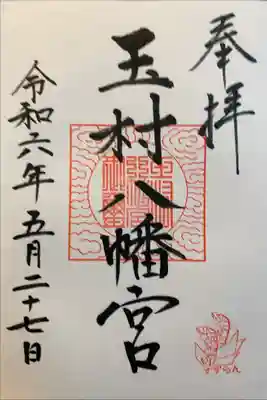 奉拝
玉村八幡宮
令和六年五月二十七日